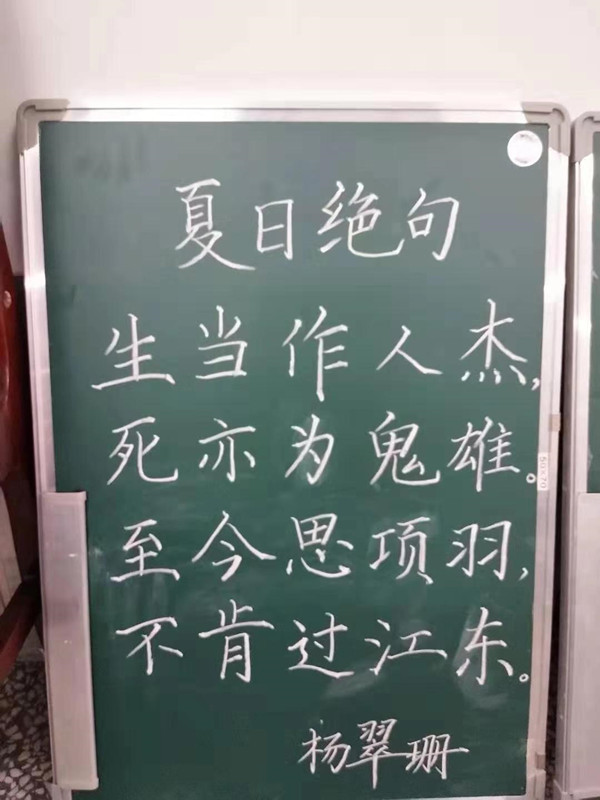 夏日绝句
生当作人杰,
死亦为鬼雄。
至今思项羽,
不肯过江东。
杨翠珊
50×70